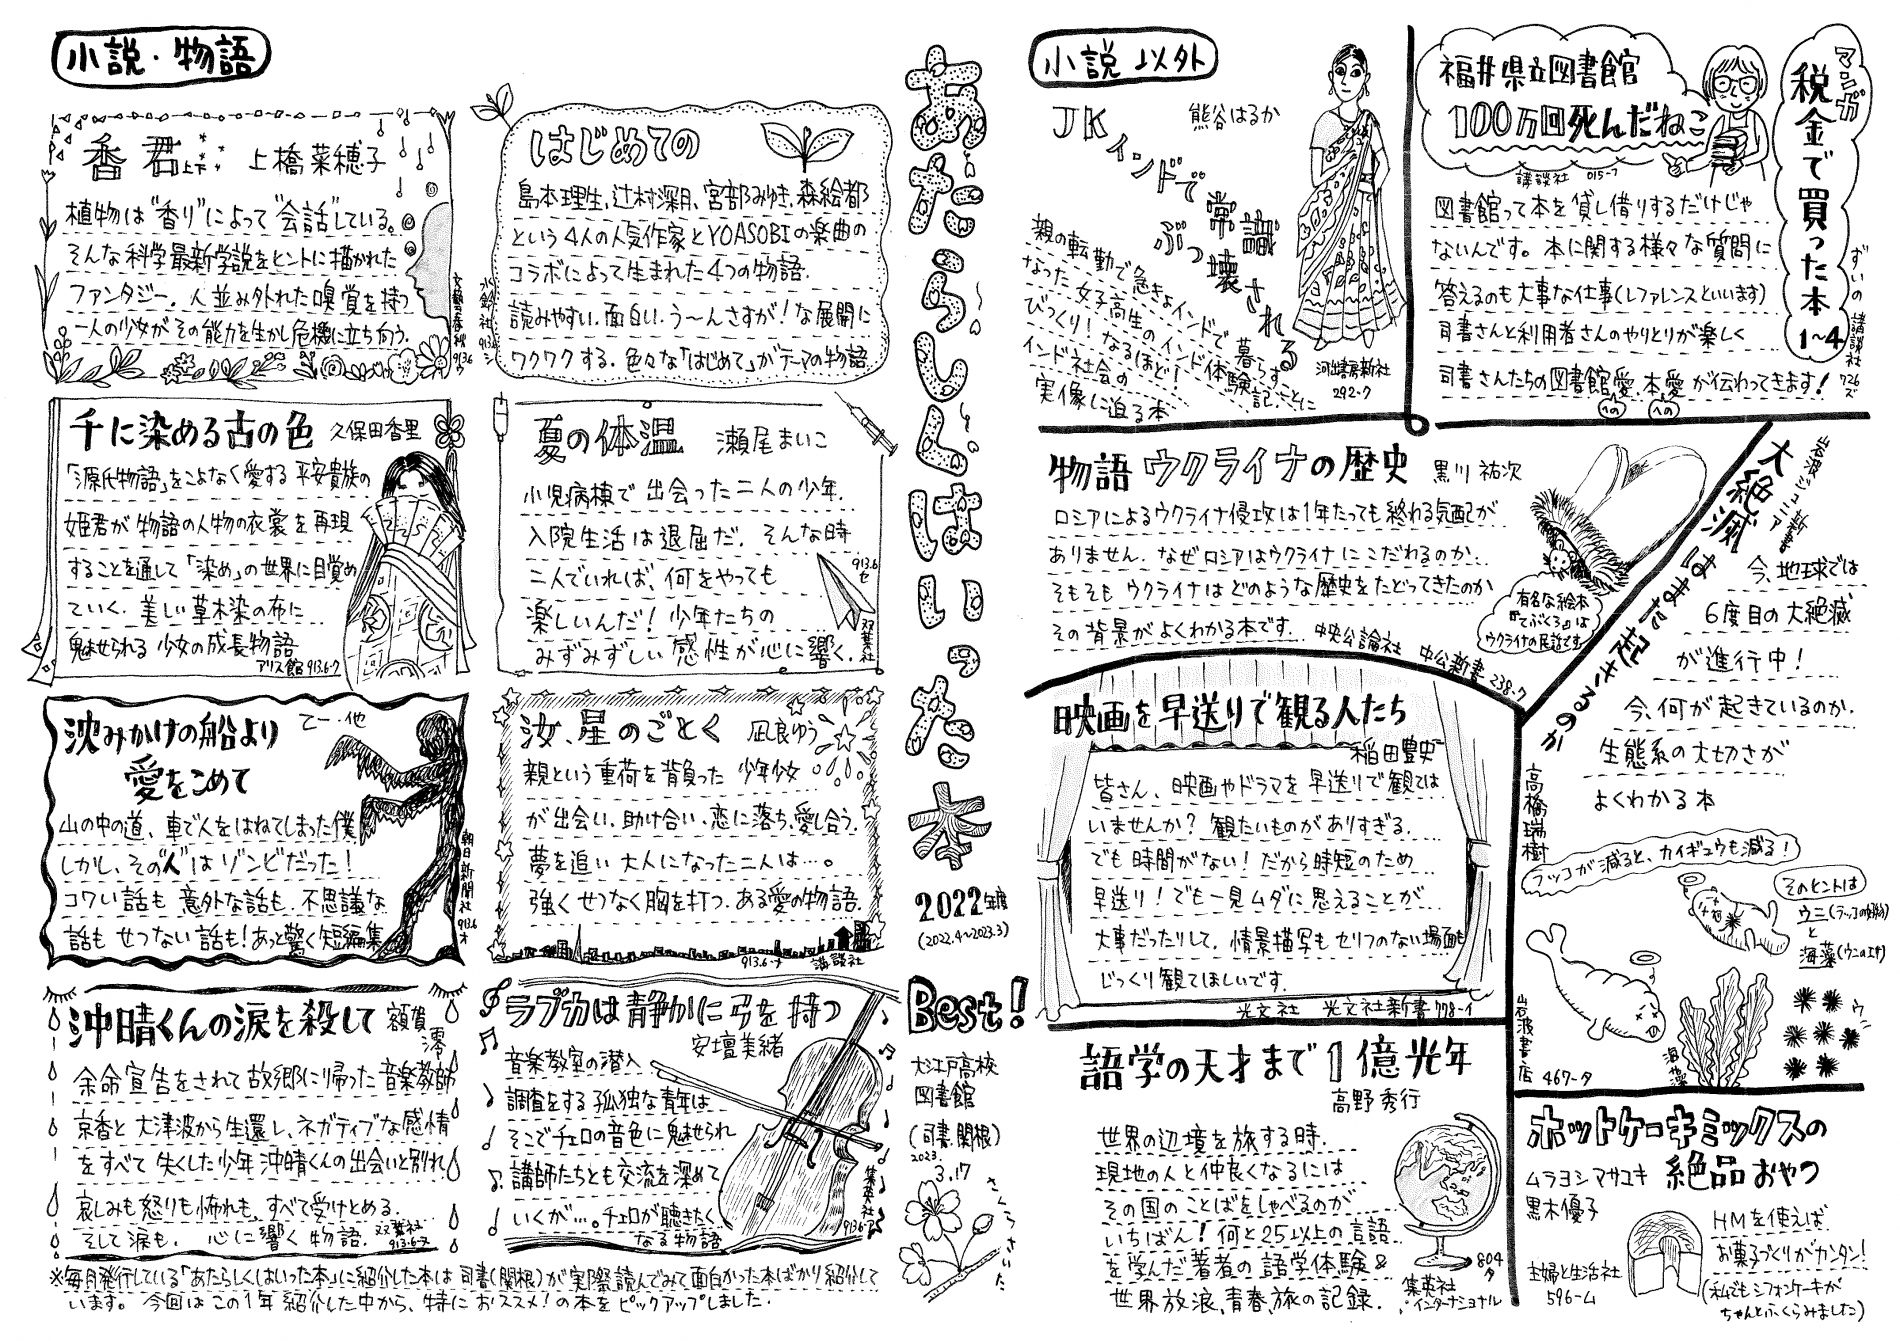 小説・物語
香君 上下 上橋菜穂子
植物は"香り"によって"会話"している。
そんな科学最新学説をヒントに描かれた
ファンタジー。人並み外れた嗅覚を持つ
一人の少女がその能力を生かし危機に立ち向う。
文藝春秋 913.6 ウ
はじめての
島本理生、辻村深月、宮部みゆき、森絵都
という4人の人気作家とYOASOBIの楽曲の
コラボによって生まれた4つの物語。
読みやすい、面白い、う〜んさすが!な展開に
ワクワクする。色々な「はじめて」がテーマの物語
水鈴社 913.6 シ
千に染める古の色 久保田香里
「源氏物語」をこよなく愛する平安貴族の
姫君が物語の人物の衣裳を再現
することを通して「染め」の世界に目覚め
ていく。美しい草木染の布に
魅せられる少女の成長物語
アリス館 913.6-ク
夏の体温 瀬尾まいこ
小児病棟で出会った二人の少年。
入院生活は退屈だ。そんな時
二人でいれば、何をやっても
楽しいんだ!少年たちの
みずみずしい感性が心に響く。
913.6 セ 双葉社
沈みかけの船より
愛をこめて
乙一・他
山の中の道、車で人をはねてしまった僕
しかし、その"人"はゾンビだった!
コワい話も意外な話も、不思議な
話もせつない話も!あっと驚く短編集
朝日新聞社 913.6 オ
汝、星のごとく 凪良ゆう
親という重荷を背負った少年少女
が出会い、助け合い、恋に落ち、愛し合う。
夢を追い大人になった二人は…。
強くせつなく胸を打つ、ある愛の物語。
913.6-ナ 講談社
沖晴くんの涙を殺して 額賀澪
余命宣告をされて故郷に帰った音楽教師
京香と大津波から生還し、ネガティブな感情
をすべて失くした少年沖晴くんの出会いと別れ
哀しみも怒りも怖れも、すべて受けとめる。
そして涙も。心に響く物語。
双葉社 913.6-ヌ
ラブカは静かに弓を持つ
安壇美緒
音楽教室の潜入
調査をする孤独な青年は
そこでチェロの音色に魅せられ
講師たちとも交流を深めて
いくが…。チェロが聴きたく
なる物語
集英社 913.6-ア
※毎月発行している「あたらしくはいった本」に紹介した本は司書(関根)が実際読んでみて面白かった本ばかり紹介して
います。今回はこの1年紹介した中から、特におススメ!の本をピックアップしました。
あたらしくはいった本
2022年度
(2022.4〜2023.3)
Best!
大江戸高校
図書館
(司書 関根)
2023.
3.17
さくらさいた
小説以外
JKインドで常識ぶっ壊される
熊谷はるか
親の転勤で急きょインドで暮らす
なった女子高生のインド体験記。ことに
びっくり!なるほど!
インド社会の
実像に迫る本
河出書房新社
292-ク
福井県立図書館
100万回死んだねこ
講談社 015-フ
図書館って本を貸し借りするだけじゃ
ないんです。本に関する様々な質問に
答えるのも大事な仕事(レファレンスといいます)
司書さんと利用者さんのやりとりが楽しく
司書さんたちの図書館愛、本愛が伝わってきます!
マンガ
税金で買った本
1〜4
ずいの 講談社 726-ズ
物語 ウクライナの歴史 黒川祐次
ロシアによるウクライナ侵攻は1年たっても終わる気配が
ありません。なぜロシアはウクライナにこだわるのか。
そもそもウクライナはどのような歴史をたどってきたのか
その背景がよくわかる本です。中央公論社 中公新書 238-ク
有名な絵本
『てぶくろ』は
ウクライナの民話です
大絶滅はまた起きるのか
岩波ジュニア新書
高橋瑞樹
今、地球では
6度目の大絶滅
が進行中!
今、何が起きているのか。
生態系の大切さが
よくわかる本
ラッコが減ると、カイギュウも減る!
そのヒントは
ウニ(ラッコの好物)
と
海藻(ウニのエサ)
ウニ
海藻
岩波書店 467-タ
映画を早送りで観る人たち
稲田豊史
皆さん、映画やドラマを早送りで観ては
いませんか?観たいものがありすぎる。
でも時間がない!だから時短のため
早送り!でも一見ムダに思えることが
大事だったりして、情景描写もセリフのない場面も
じっくり観てほしいです。
光文社 光文社新書 778-イ
語学の天才まで1億光年
高野秀行
世界の辺境を旅する時、
現地の人と仲良くなるには
その国のことばをしゃべるのが
いちばん!何と25以上の言語
を学んだ著者の語学体験&
世界放浪、青春、旅の記録。
804 タ
集英社
インターナショナル
ホットケーキミックスの
絶品おやつ
ムラヨシマサユキ
黒木優子
HMを使えば、
お菓子づくりがカンタン!
(私でもシフォンケーキが
ちゃんとふくらみました)
主婦と生活社
596-ム